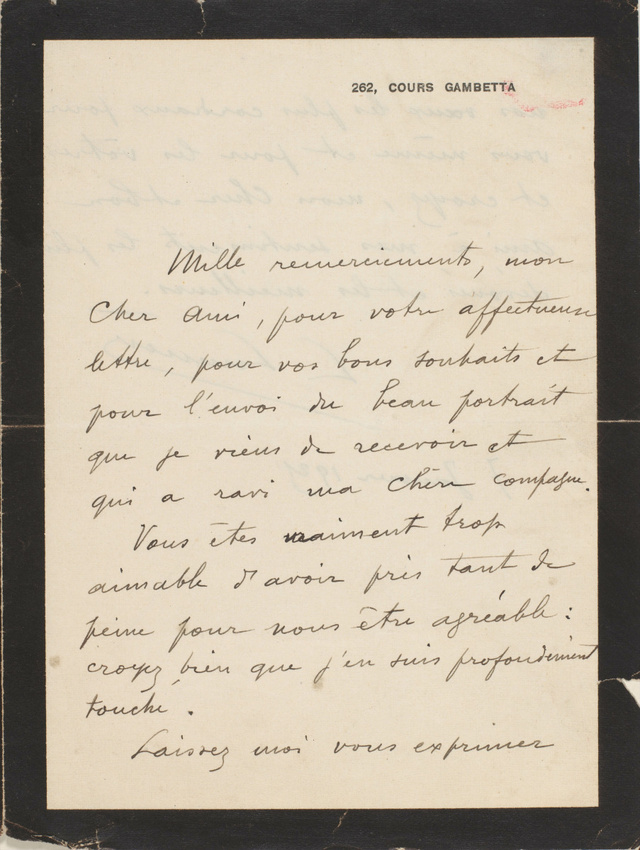 262, COURS GAMBETTA
Mille remerciements, mon
cher ami, pour votre affectueuse
lettre, pour vos bons souhaits et
pour l'envoi du beau portrait
que je viens de recevoir et
qui a ravi ma chère compagne.
Vous êtes vraiment trop
aimable d'avoir pris tant de
peine pour nous être agréable :
croyez bien que j'en suis profondément
touché.
Laissez moi vous exprimer